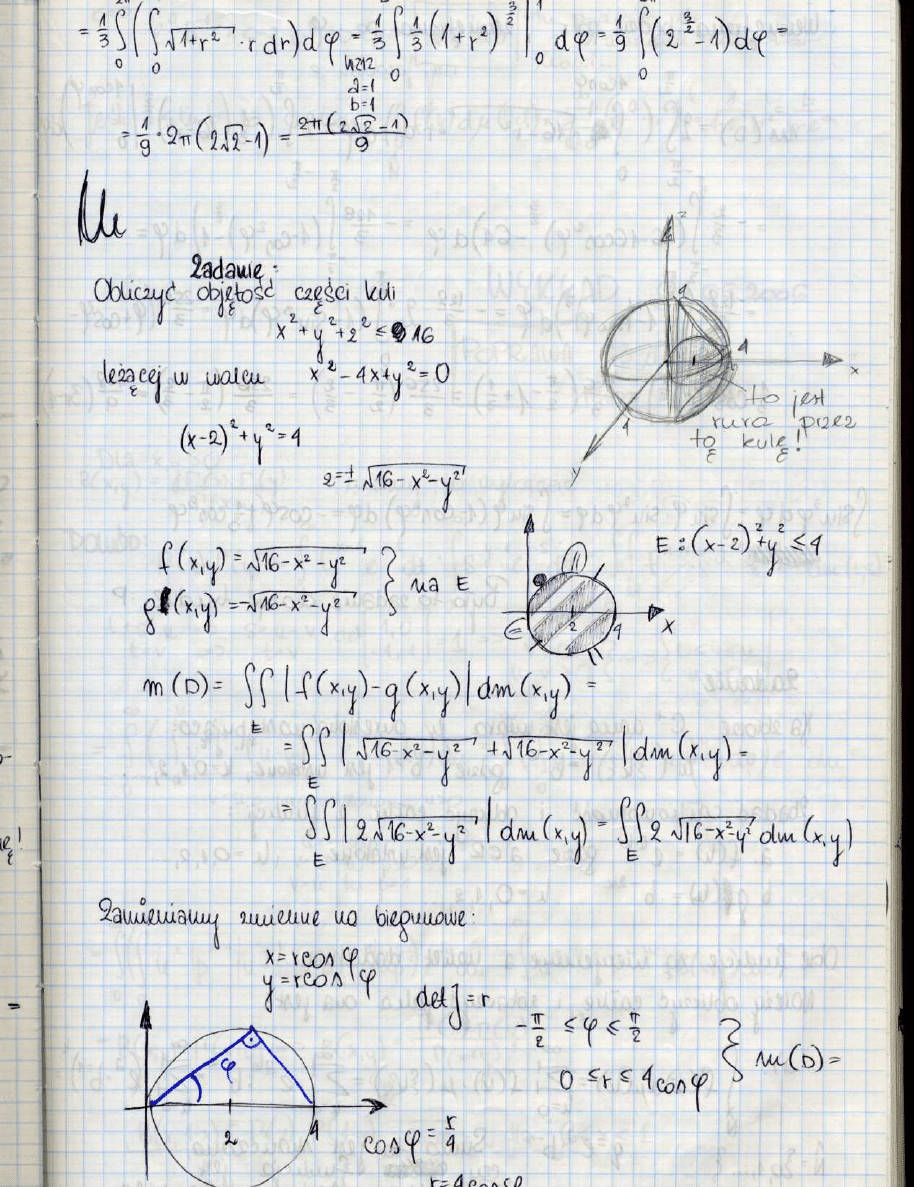 = 1/3 ∫₀^2π ( ∫₀^1 √(1+r²) · r dr) dφ = 1/3 ∫₀ 1/3 (1+r²)^(3/2) |₀^1 dφ = 1/9 ∫₀ (2^(3/2) - 1) dφ =
a=1
b=1
= 1/9 · 2π (2√2 - 1) = 2π(2√2 - 1)/9
Zadanie:
Obliczyć objętość części kuli
x² + y² + z² ≤ 16
leżącej w walcu x² - 4x + y² = 0
z
4
4
x
4
y
to jest
rura przez
tę kulę!
(x-2)² + y² = 4
z = ± √(16 - x² - y²)
E : (x-2)² + y² ≤ 4
f(x,y) = √(16 - x² - y²)
g(x,y) = -√(16 - x² - y²)
} na E
2
4
x
m(D) = ∬_E | f(x,y) - g(x,y) | dm(x,y) =
= ∬_E | √(16 - x² - y²) + √(16 - x² - y²) | dm(x,y) =
= ∬_E | 2√(16 - x² - y²) | dm(x,y) = ∬_E 2√(16 - x² - y²) dm(x,y)
Zamieniamy zmienne na biegunowe:
x = r cos φ
y = r cos φ
det J = r
-π/2 ≤ φ ≤ π/2
0 ≤ r ≤ 4 cos φ
} m(D) =
φ
2
4
cos φ = r/4
r = 4 cos φ